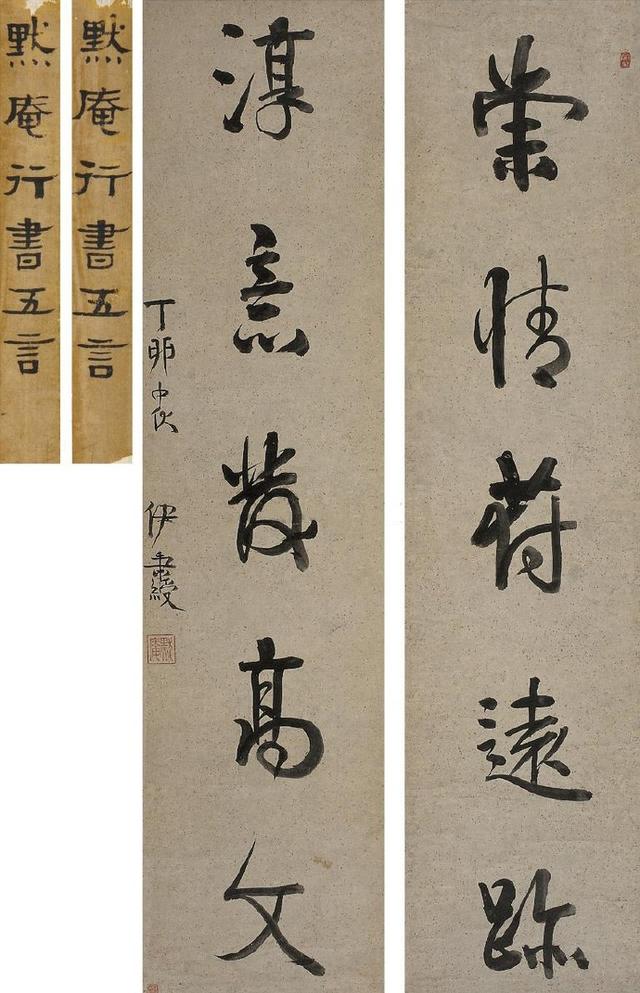 崇情符遠跡
淳意發高文
丁卯中伏 伊秉綬
默庵行書五言
默庵行書五言